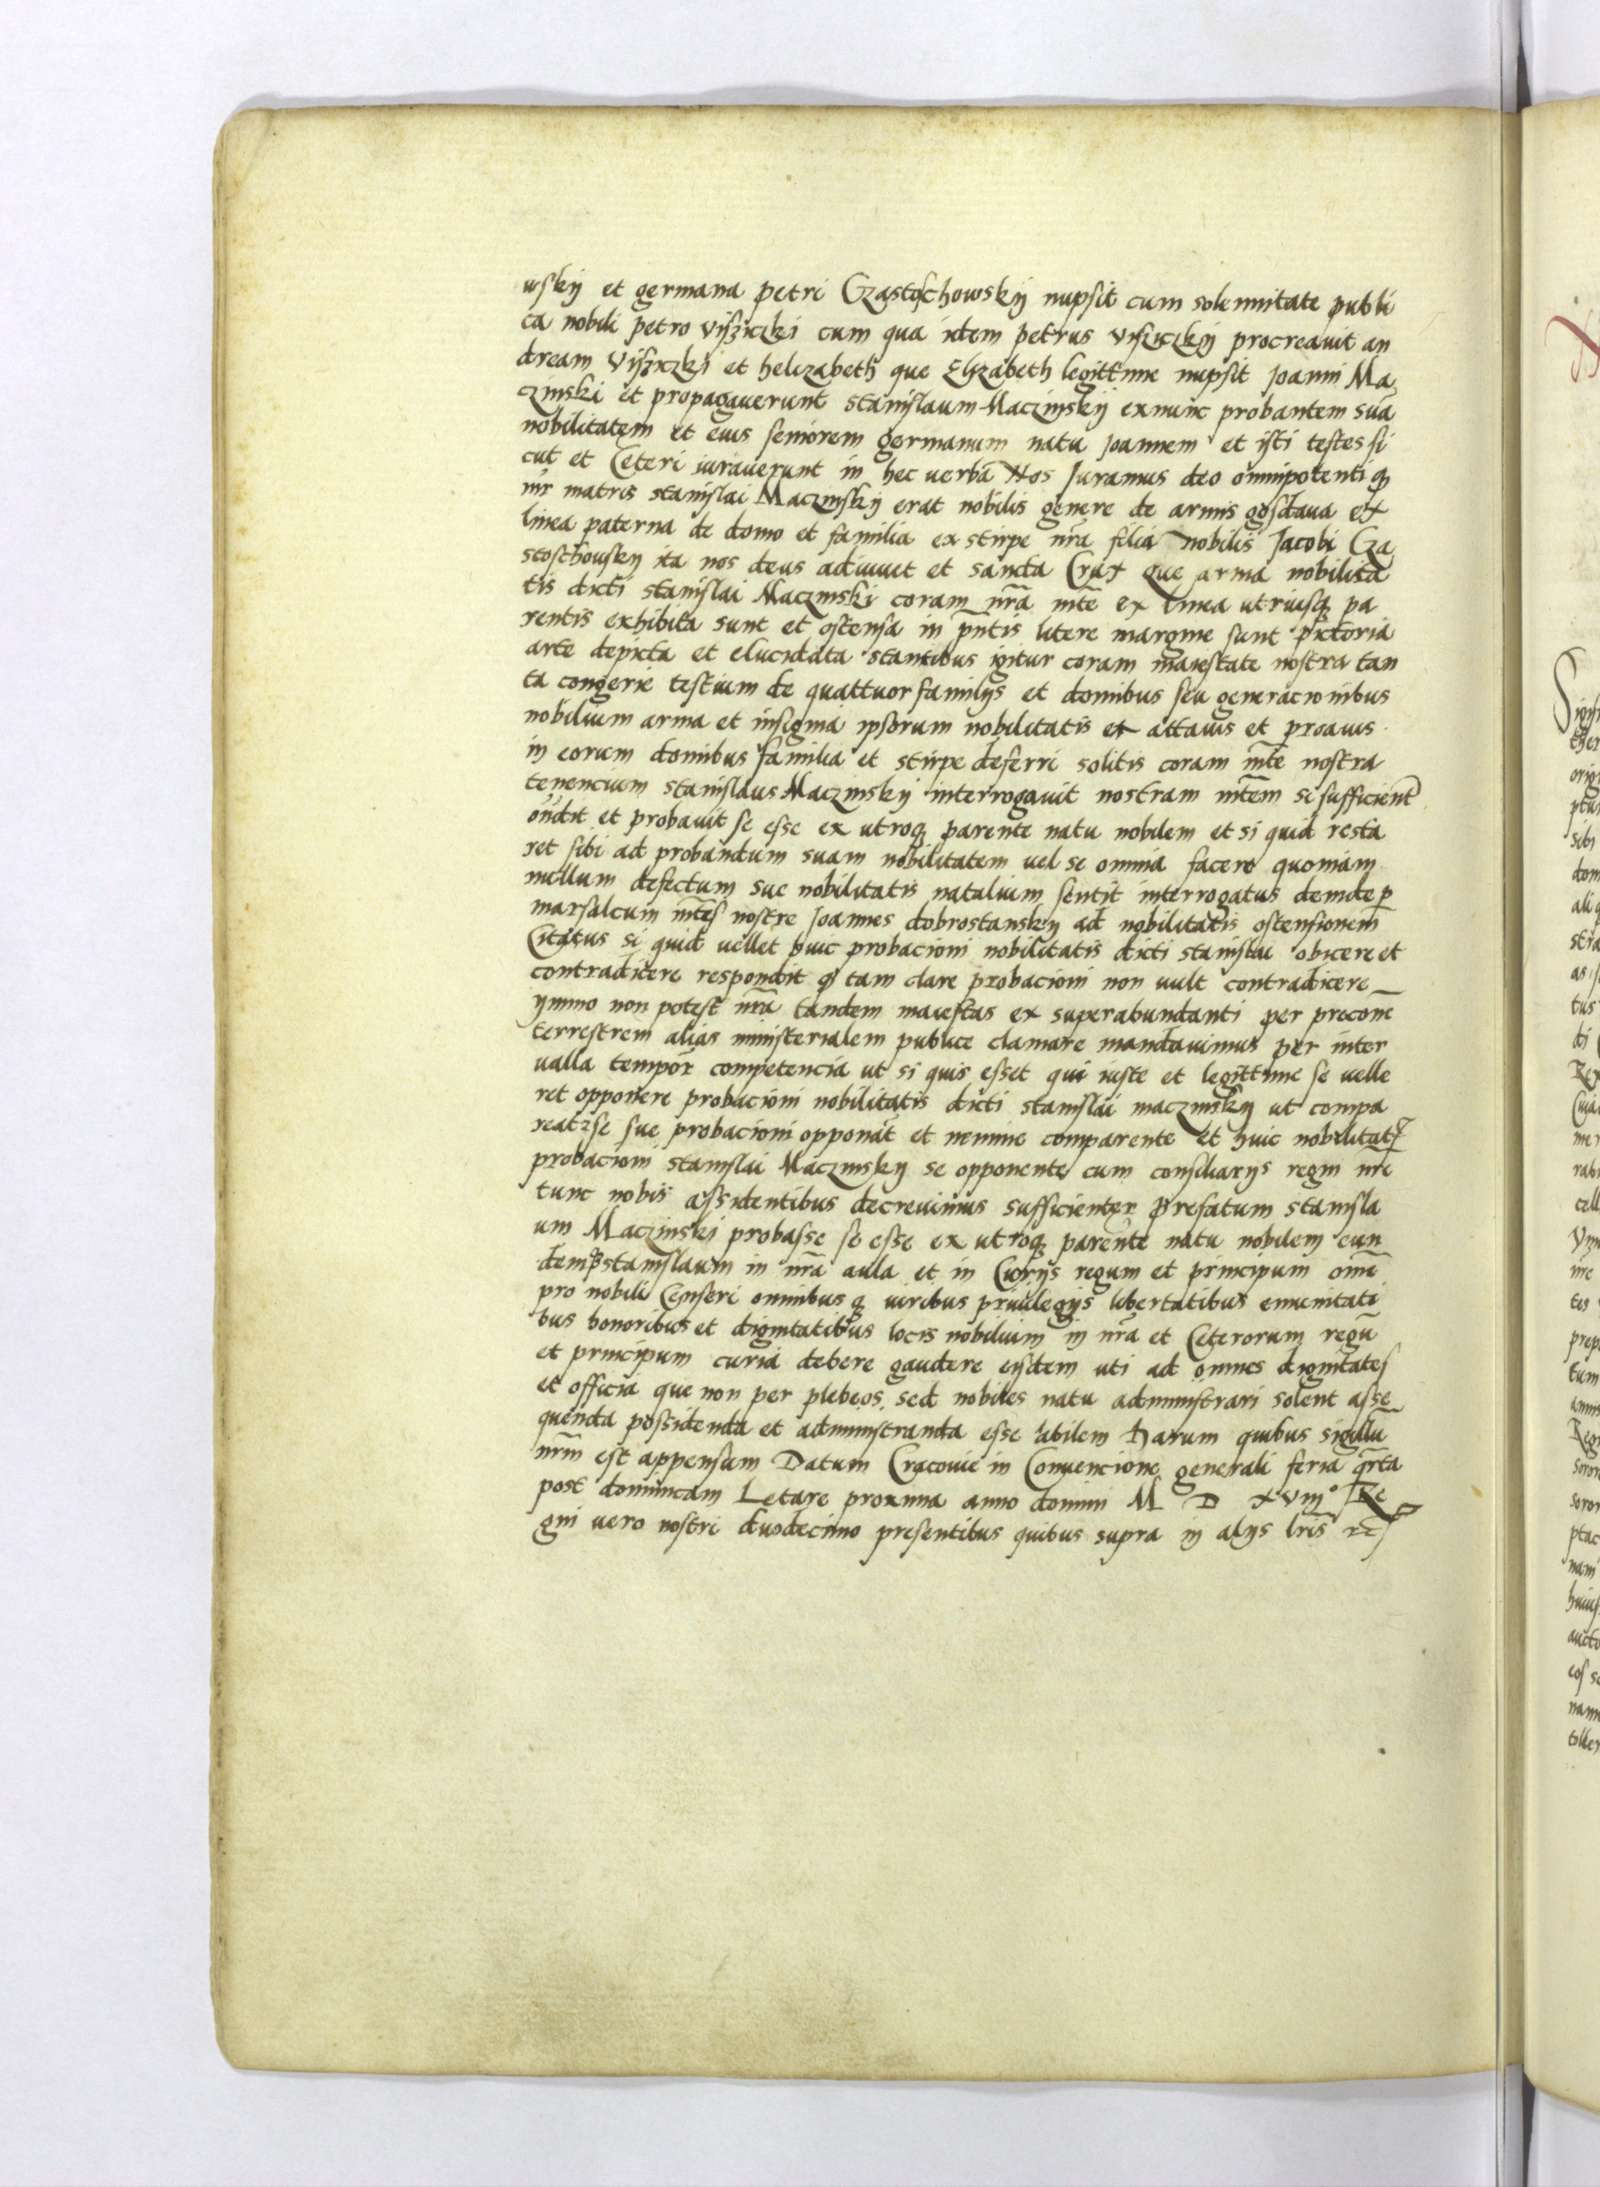 wskÿ et germana petri Cząstoſchowskÿ nupsit cum solennitate publi
ca nobili petro viſziczki cum qua idem petrus viſziczkÿ procreavit an
dream viſziczki et helizabeth que Elizabeth legittime nupsit Joanni Ma
czinski et propagaverunt stanislaum Maczinskÿ exnunc probantem suā
nobilitatem et eius seniorem germanum natu Joannem et isti testes si
cut et Ceteri iuraverunt in hec verba Nos Juramus deo omnipotenti ꝙ
mr̄ matris stanislai Maczinskÿ erat nobilis genere de armis gosdava ex
linea paterna de domo et familia ex stirpe nr̄a filia nobilis Jacobi Cza
stoschovsky ita nos deus adiuvet et sancta Crux que arma nobilita
tis dicti stanislai Maczinski coram nr̄a mte ex linea utriusqꝫ pa
rentis exhibita sunt et ostensa in pn̄tis litere margine sunt pictoria
arte depicta et elucidata stantibus igitur coram maiestate nostra tan
ta congerie testium de quattuor familÿs et domibus seu generacionibus
nobilium arma et insignia ipsorum nobilitatis ex attavis et proavis
in eorum domibus familia et stirpe deferri solitis coram mte nostra
tenencium stanislaus Maczinskÿ interrogavit nostram mtem si sufficient
on̄dit et probavit se esse ex utroqꝫ parente natu nobilem et si quid resta
ret sibi ad probandum suam nobilitatem vel se omnia facere quoniam
nullum defectum sue nobilitatis natalium sentit interrogatus deinde p
marsalcum mtes nostre Joannes dobrostansky ad nobilitatis ostensionem
Citatus si quid vellet huic probacioni nobilitatis dicti stanislai obiicere et
contradicere respondit ꝙ tam clare probacioni non vult contradicere
ymmo non potest nr̄a tandem maiestas ex superabundanti per precone
terrestrem alias ministerialem publice clamare mandavimus per inter
valla tempor competencia ut si quis esset qui iuste et legittime se velle
ret opponere probacioni nobilitatis dicti stanislai maczinskÿ ut compa
reat et se sue probacioni opponat et nemine comparente et huic nobilitat
probacioni stanislai Maczinskÿ se opponente cum consiliarÿs regni nr̄i
tunc nobis assidentibus decrevimus sufficienter prefatum stanisla
um Maczinski probasse se esse ex utroqꝫ parente natu nobilem eun
demqꝫ stanislaum in nr̄a aula et in Curÿs regum et principum om̄i
pro nobili Censeri omnibus qꝫ iuribus privilegÿs libertatibus emunitati
bus honoribus et dignitatibus locis nobilium in nr̄a et Ceterorum regū
et principum curia debere gaudere eisdem uti ad omnes dignitates
et officia que non per plebeos sed nobiles natu administrari solent asse
quenda possidenda et administranda esse abilem Harum quibus sigillū
nr̄m est appensum Datum Cracovie in Convencione generali feria qrta
post dominicam Letare proxima anno domini M D xviijº Re
gni vero nostri duodecimo presentibus quibus supra in alÿs lr̄is etc